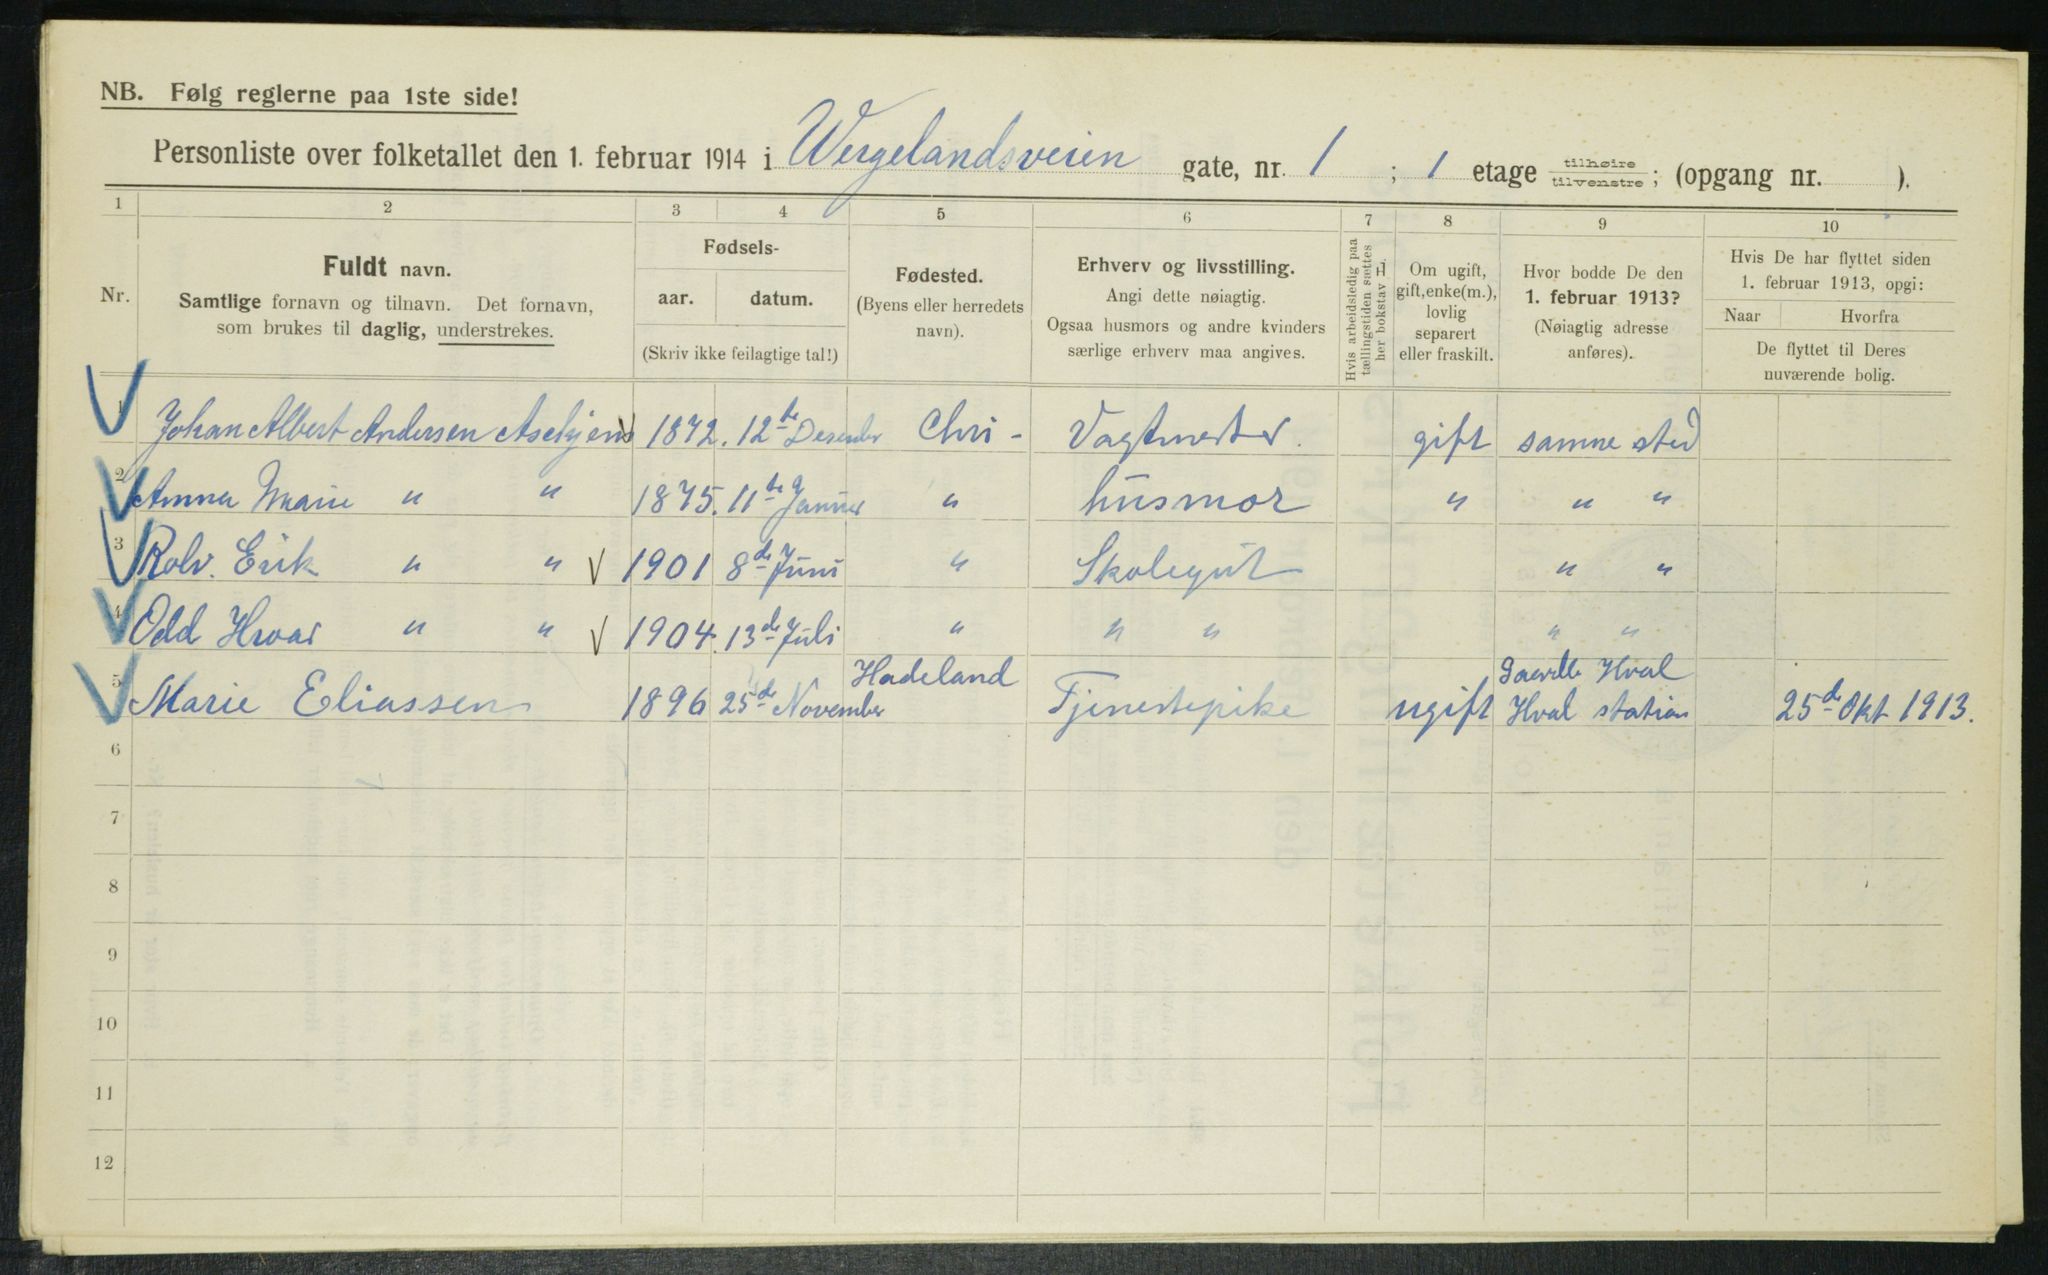 NB. Følg reglerne paa 1ste side!
Personliste over folketallet den 1. februar 1914 i Wergelandsveien gate, nr. 1 ; 1 etage tilhøire tilvenstre; (opgang nr. ).
1 2 3 4 5 6 7 8 9 10
Nr.
Fuldt navn.
Samtlige fornavn og tilnavn. Det fornavn,
som brukes til daglig, understrekes.
Fødsels-
aar. datum.
(Skriv ikke feilagtige tal!)
Fødested.
(Byens eller herredets
navn).
Erhverv og livsstilling.
Angi dette nøiagtig.
Ogsaa husmors og andre kvinders
særlige erhverv maa angives.
Hvis arbeidsledig paa
tællingstiden sættes
her bokstav L.
Om ugift,
gift, enke(m.),
lovlig
separert
eller fraskilt.
Hvor bodde De den
1. februar 1913?
(Nøiagtig adresse
anføres).
Hvis De har flyttet siden
1. februar 1913, opgi:
Naar Hvorfra
De flyttet til Deres
nuværende bolig.
1 Johan Albert Andersen 1872. 12te Desember Chri - Vagtmester. gift samme sted
2 Anna Marie " " 1875. 11te Januar " husmor " " "
3 Rolv. Erik " " 1901 8de Juni " Skolegut " "
4 Odd Hroar " " 1904. 13de Juli " " " " "
5 Marie Eliassen 1896 25de November Hadeland Tjenestepike ugift Hval Hval station 25de Okt 1913.
6
7
8
9
10
11
12